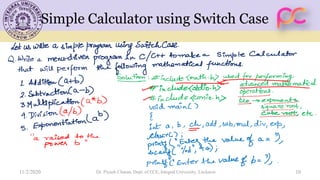 Simple Calculator using Switch Case
Let us write a simple program using Switch Case
Q. Write a menu driven program in C/C++ to make a Simple Calculator
that will perform the following mathematical functions.
1. Addition (a+b)
2. Subtraction (a-b)
3. Multiplication (a*b)
4. Division (a/b)
5. Exponentiation (a^b)
"a raised to the
power b"
Solution:
#include <math.h> used for performing
advanced mathematical
operations
like exponents
square root,
cube root, etc.
#include <stdio.h>
#include <conio.h>
void main()
{
int a, b, ch, add, sub, mul, div, exp,
clrscr();
printf("Enter the value of a = ");
scanf("%d", &a);
printf("Enter the value of b = ");
11/2/2020
Dr. Piyush Charan, Dept. of ECE, Integral University, Lucknow
10